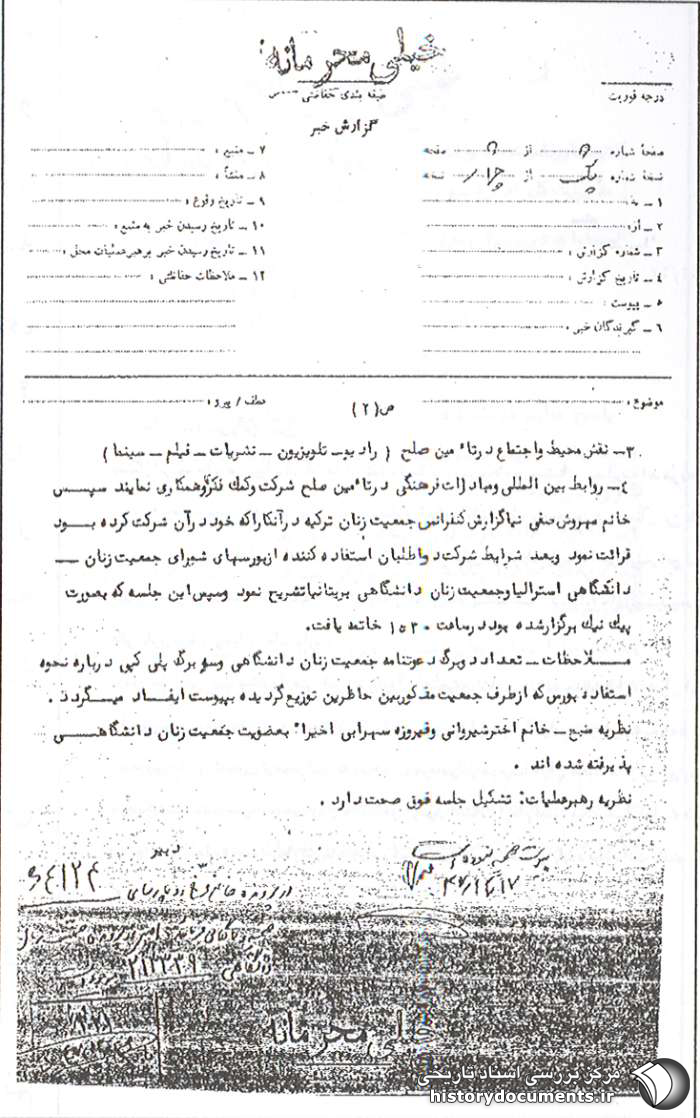 خیلی محرمانه
طبقه بندی حفاظتی
درجه فوریت
گزارش خبر
صفحهٔ شماره از صفحه
نسخهٔ شماره یک از چهار نسخه
۱ ـ به
۲ ـ از:
۳ ـ شماره گزارش :
۴ ـ تاریخ گزارش :
۵ ـ پیوست :
۶ ـ گیرندگان خبر :
۷ ـ منبع :
۸ ـ منشأ :
۹ ـ تاریخ وقوع :
۱۰ ـ تاریخ رسیدن خبر به منبع :
۱۱ ـ تاریخ رسیدن خبر برهبر عملیات محل :
۱۲ ـ ملاحظات حفاظتی :
موضوع :
ص (۲)
عطف / پیرو :
۳ـ نقش محیط واجتماع درتاٴمین صلح ( رادیوـ تلویزیون ـ نشریات ـ فیلم ـ سینما )
۴ـ روابط بین المللی ومبادلات فرهنگی درتاٴمین صلح شرکت وکمک فکروهمکاری نمایند سپس
خانم مهروش صفی نیاگزارش کنفرانس جمعیت زنان ترکیه درآنکاراکه خود درآن شرکت کرده بود
قرائت نمود وبعد شرایط شرکت داوطلبان استفاده کننده ازبورسهای شورای جمعیت زنان ـ
دانشگاهی استرالیاوجمعیت زنان دانشگاهی بریتانیاتشریح نمود وسپس این جلسه که بصورت
پیک نیک برگزارشده بود درساعت ۱۵۳۰ خاتمه یافت.
ملاحظات ـ تعداد دوبرگ دعوتنامه جمعیت زنان دانشگاهی وسه برگ پلی کپی درباره نحوه
استفاده بورس که ازطرف جمعیت مذکوربین حاظرین توزیع گردیده بپیوست ایفاد میگردد .
نظریه منبع ـ خانم اخترشیروانی وفیروزه سهرابی اخیراً بعضویت جمعیت زنان دانشگاهی
پذیرفته شده اند .
نظریه رهبرعملیات: تشکیل جلسه فوق صحت دارد .
۲۱۲۳۳۹
خیلی محرمانه
مرکز بررسی اسناد تاریخی
historydocuments.ir